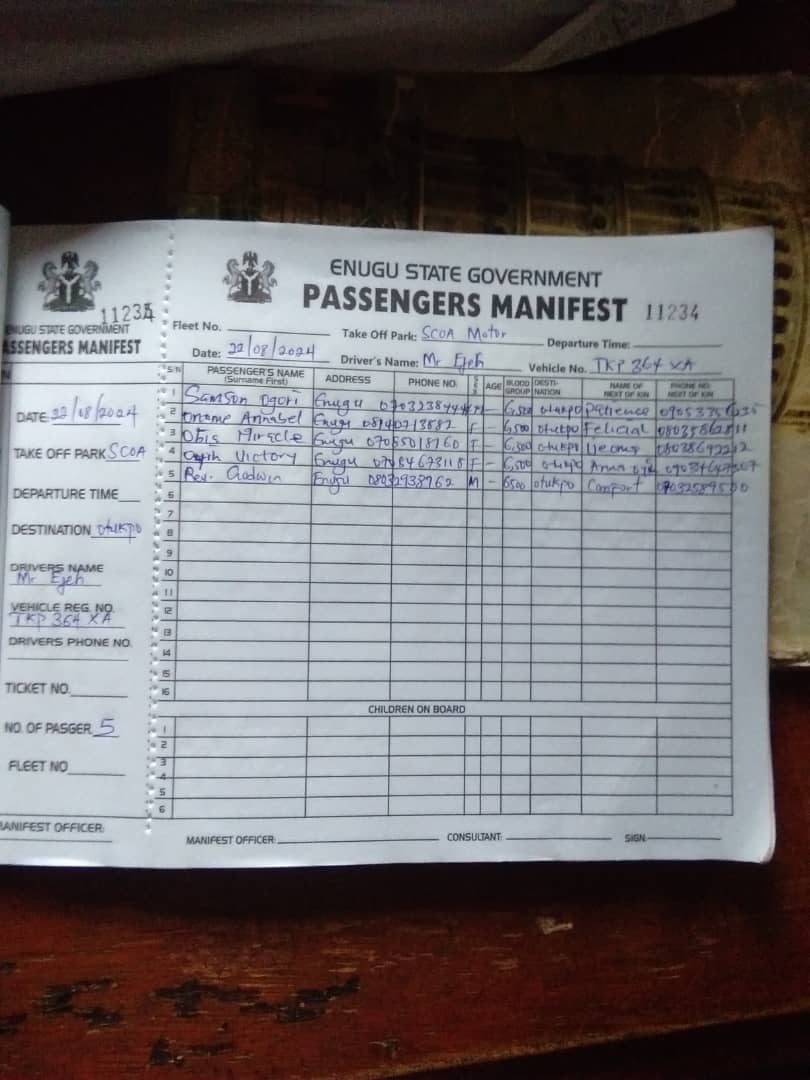 ENUGU STATE GOVERNMENT
PASSENGERS MANIFEST 11234
Fleet No. Take Off Park: SCOA Motor Departure Time:
Date: 22/08/2024 Driver's Name: Mr Ejeh Vehicle No. TKP 364 XA
S/N PASSENGER'S NAME (Surname First) ADDRESS PHONE NO. SEX AGE BLOOD GROUP DESTI-NATION NAME OF NEXT OF KIN PHONE NO. NEXT OF KIN
1 Samson Ogori Enugu M - 6,500 otukpo Patience
2 Annabel Enugu F - 6,500 otukpo Felicial
3 Miracle Enugu - 6,500 otukpo
4 Victory Enugu F - 6,500 otukpo
5 Rev. Godwin Enugu M - 6500 otukpo Comfort
6
7
8
9
10
11
12
13
14
15
16
CHILDREN ON BOARD
1
2
3
4
5
6
MANIFEST OFFICER: CONSULTANT: SIGN:
11234
ENUGU STATE GOVERNMENT
PASSENGERS MANIFEST
DATE: 22/08/2024
TAKE OFF PARK SCOA
DEPARTURE TIME
DESTINATION otukpo
DRIVERS NAME
Mr Ejeh
VEHICLE REG. NO.
TKP 364 XA
DRIVERS PHONE NO.
TICKET NO.
NO. OF PASGER 5
FLEET NO
MANIFEST OFFICER: